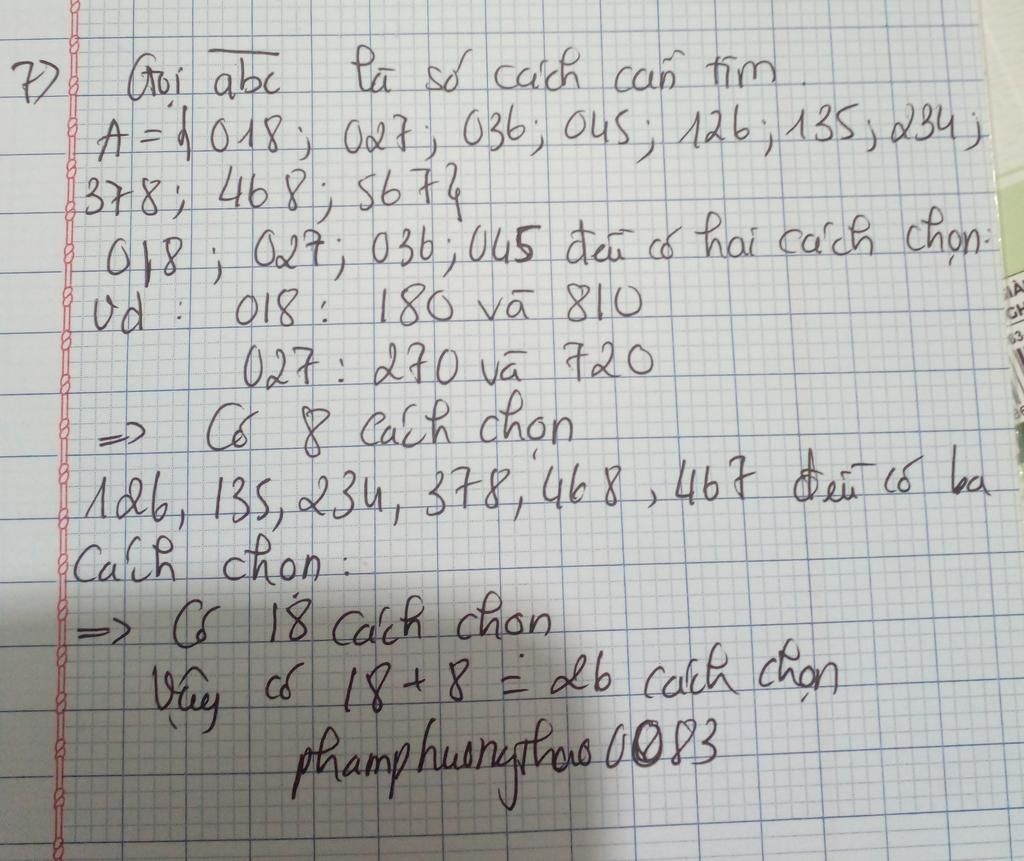 7) Gọi abc là số cách cần tìm.
A = { 018; 027; 036; 045; 126; 135; 234;
378; 468; 567}
018; 027; 036; 045 đều có hai cách chọn:
Vd: 018: 180 và 810
027: 270 và 720
=> Có 8 cách chọn
126, 135, 234, 378, 468, 467 đều có ba
cách chọn:
=> Có 18 cách chọn
Vậy có 18 + 8 = 26 cách chọn
phamphuongthao0083